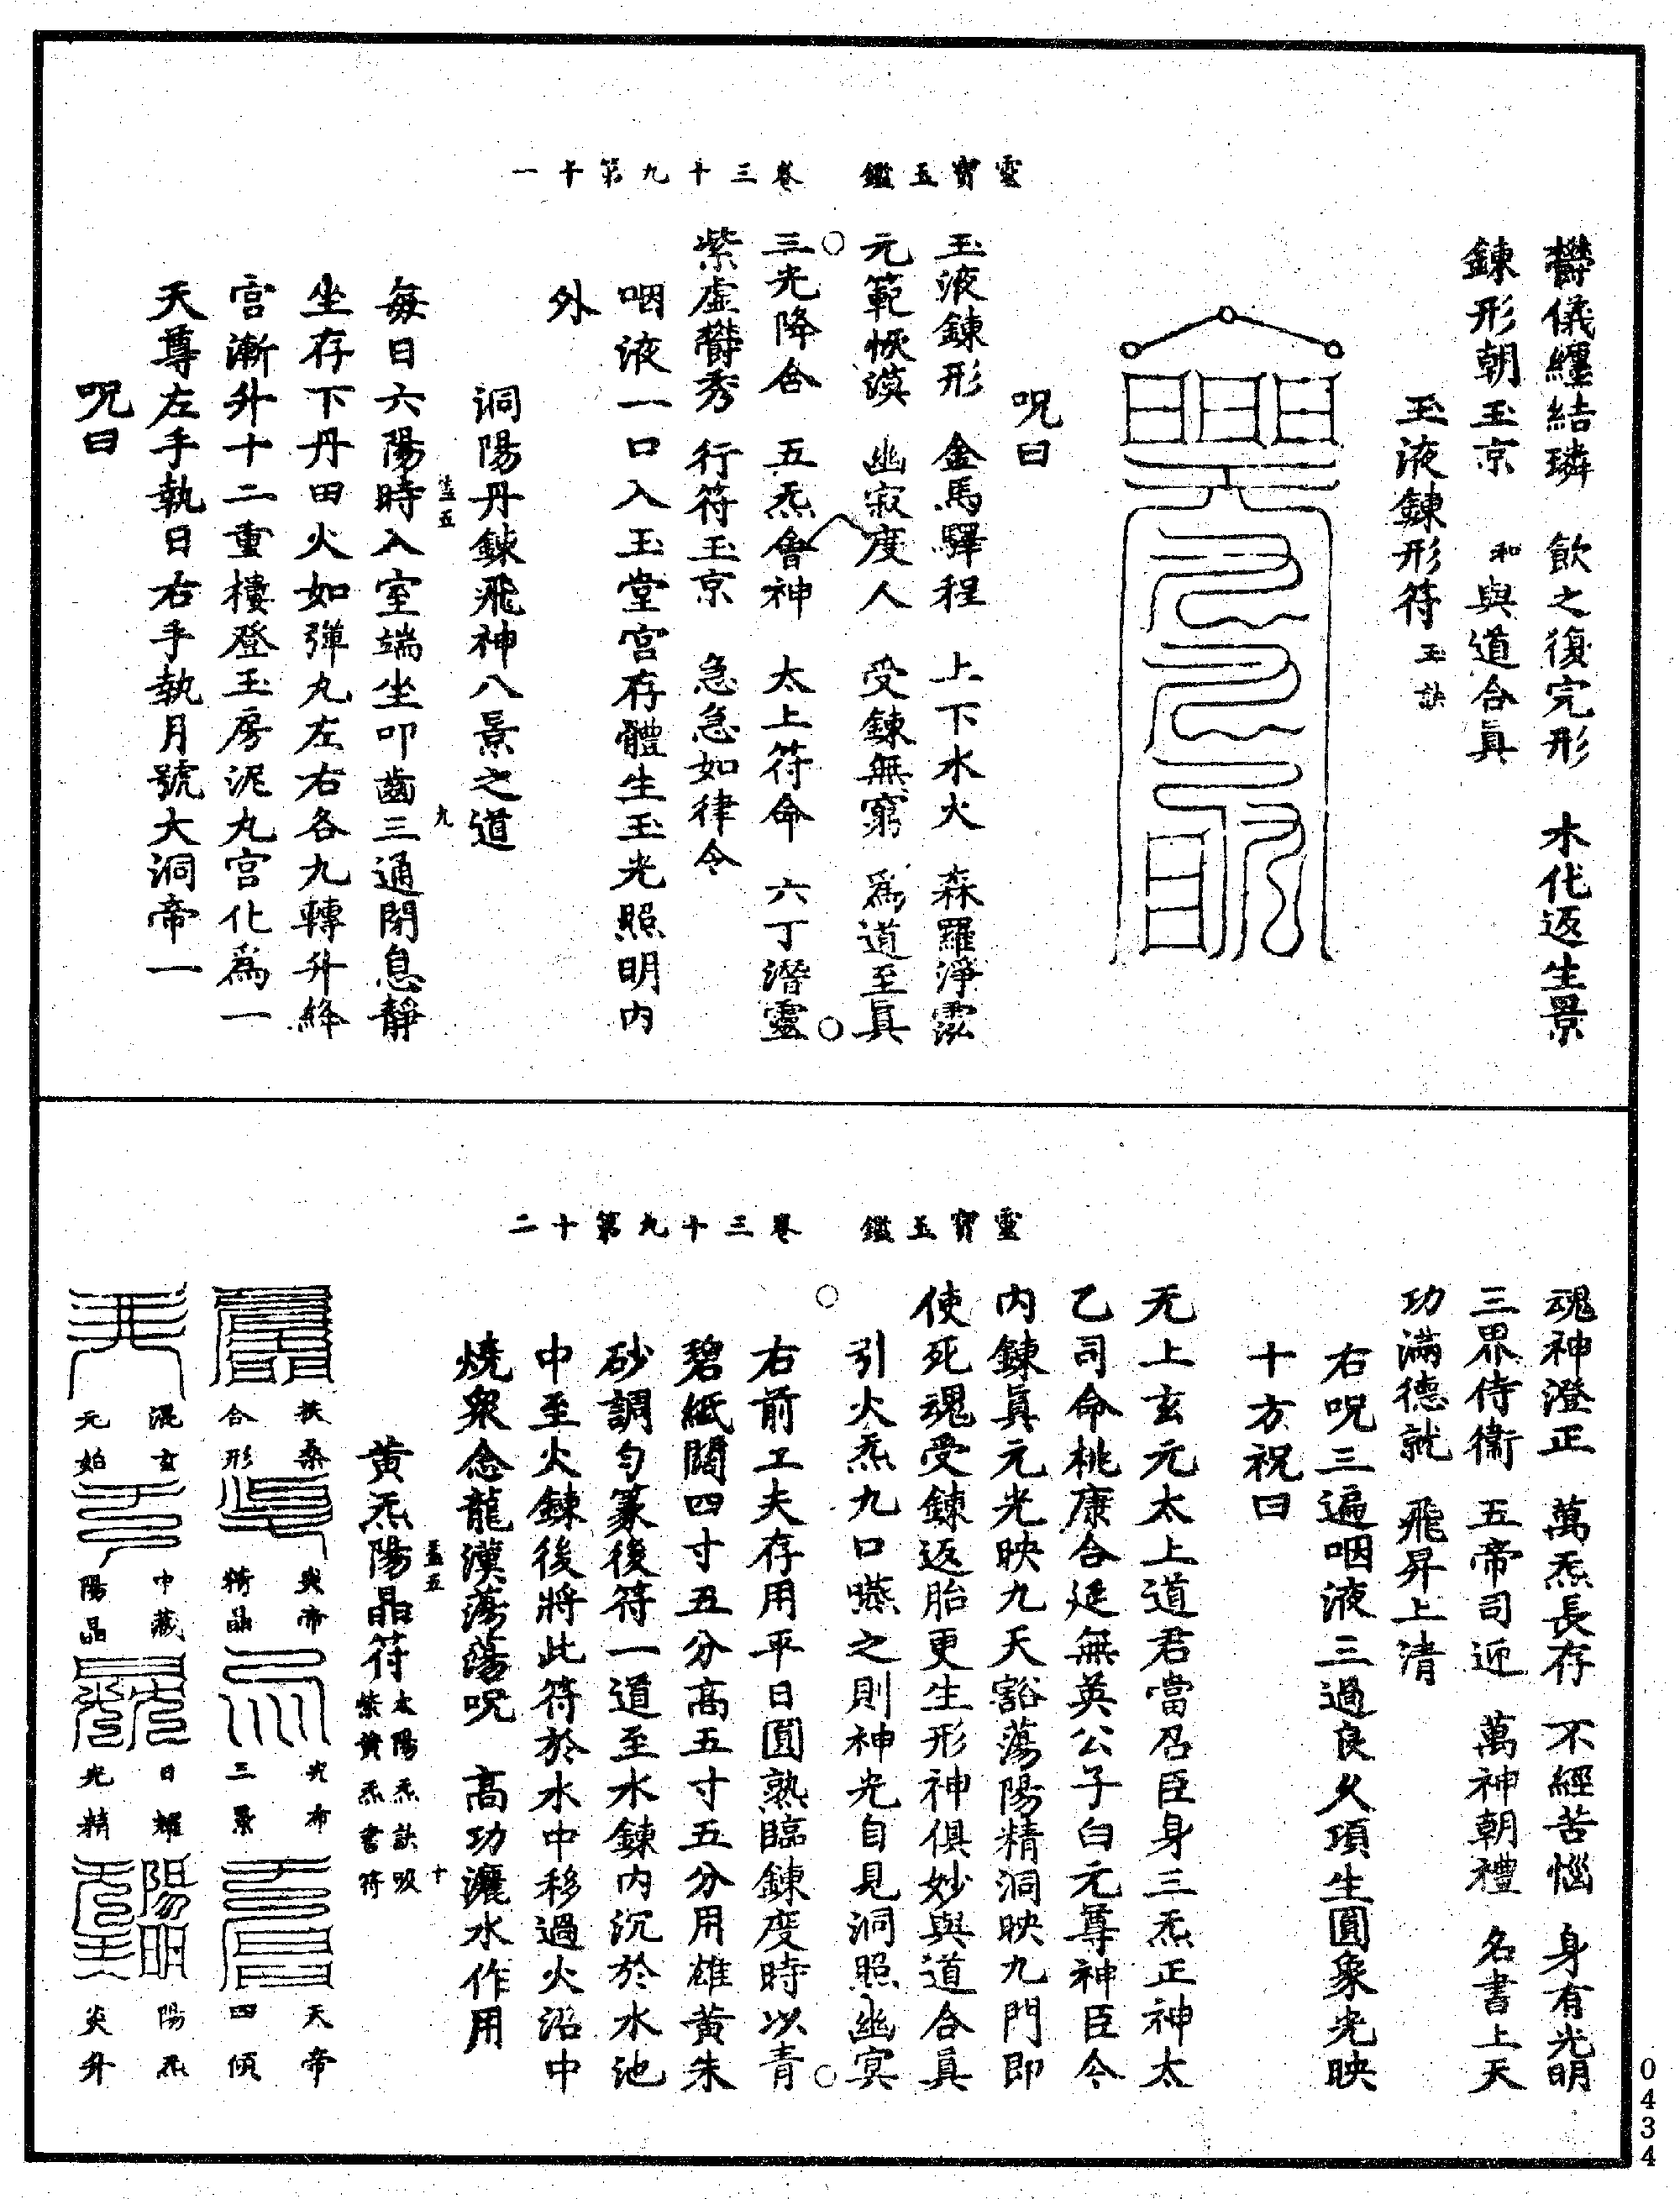 靈寶玉鑑　卷三十九第十一
鬱儀纏結璘　飲之復完形　木化返生景
鍊形朝玉京　和與道合真
玉液鍊形符玉訣
呪曰
玉液鍊形　金馬驛程　上下水火　森羅淨霐
元範恢漠　幽寂度人　受鍊無窮　為道至真
三光降合　五炁會神　太上符命　六丁潛靈
紫虛鬱秀　行符玉京　急急如律令
咽液一口入玉堂宮存體生玉光照明內
外
洞陽丹鍊飛神八景之道
孟五　九
每日六陽時入室端坐叩齒三通閉息靜
坐存下丹田火如彈丸左右各九轉升絳
宮漸升十二重樓登玉房泥丸宮化為一
天尊左手執日右手執月號大洞帝一
呪曰
靈寶玉鑑　卷三十九第十二
魂神澄正　萬炁長存　不經苦惱　身有光明
三界侍衛　五帝司迎　萬神朝禮　名書上天
功滿德就　飛昇上清
右呪三遍咽液三過良久項生圓象光映
十方祝曰
无上玄元太上道君當召臣身三炁正神太
乙司命桃康合延無英公子白元尊神臣今
內鍊真元光映九天豁蕩陽精洞映九門即
使死魂受鍊返胎更生形神俱妙與道合真
引火炁九口嚥之則神光自見洞照幽冥
右前工夫存用平日圓熟臨鍊度時以青
碧紙闊四寸五分高五寸五分用雄黃朱
砂調勻篆後符一道至水鍊內沉於水池
中至火鍊後將此符於水中移過火沼中
燒眾念龍漢蕩蕩呪　高功灑水作用
孟五　十
黃炁陽晶符太陽炁訣吸紫黃炁書符
扶桑合形
炎帝精晶
光布三景
天帝四傾
混玄元始
中藏陽晶
日耀光精
陽炁炎升
0434